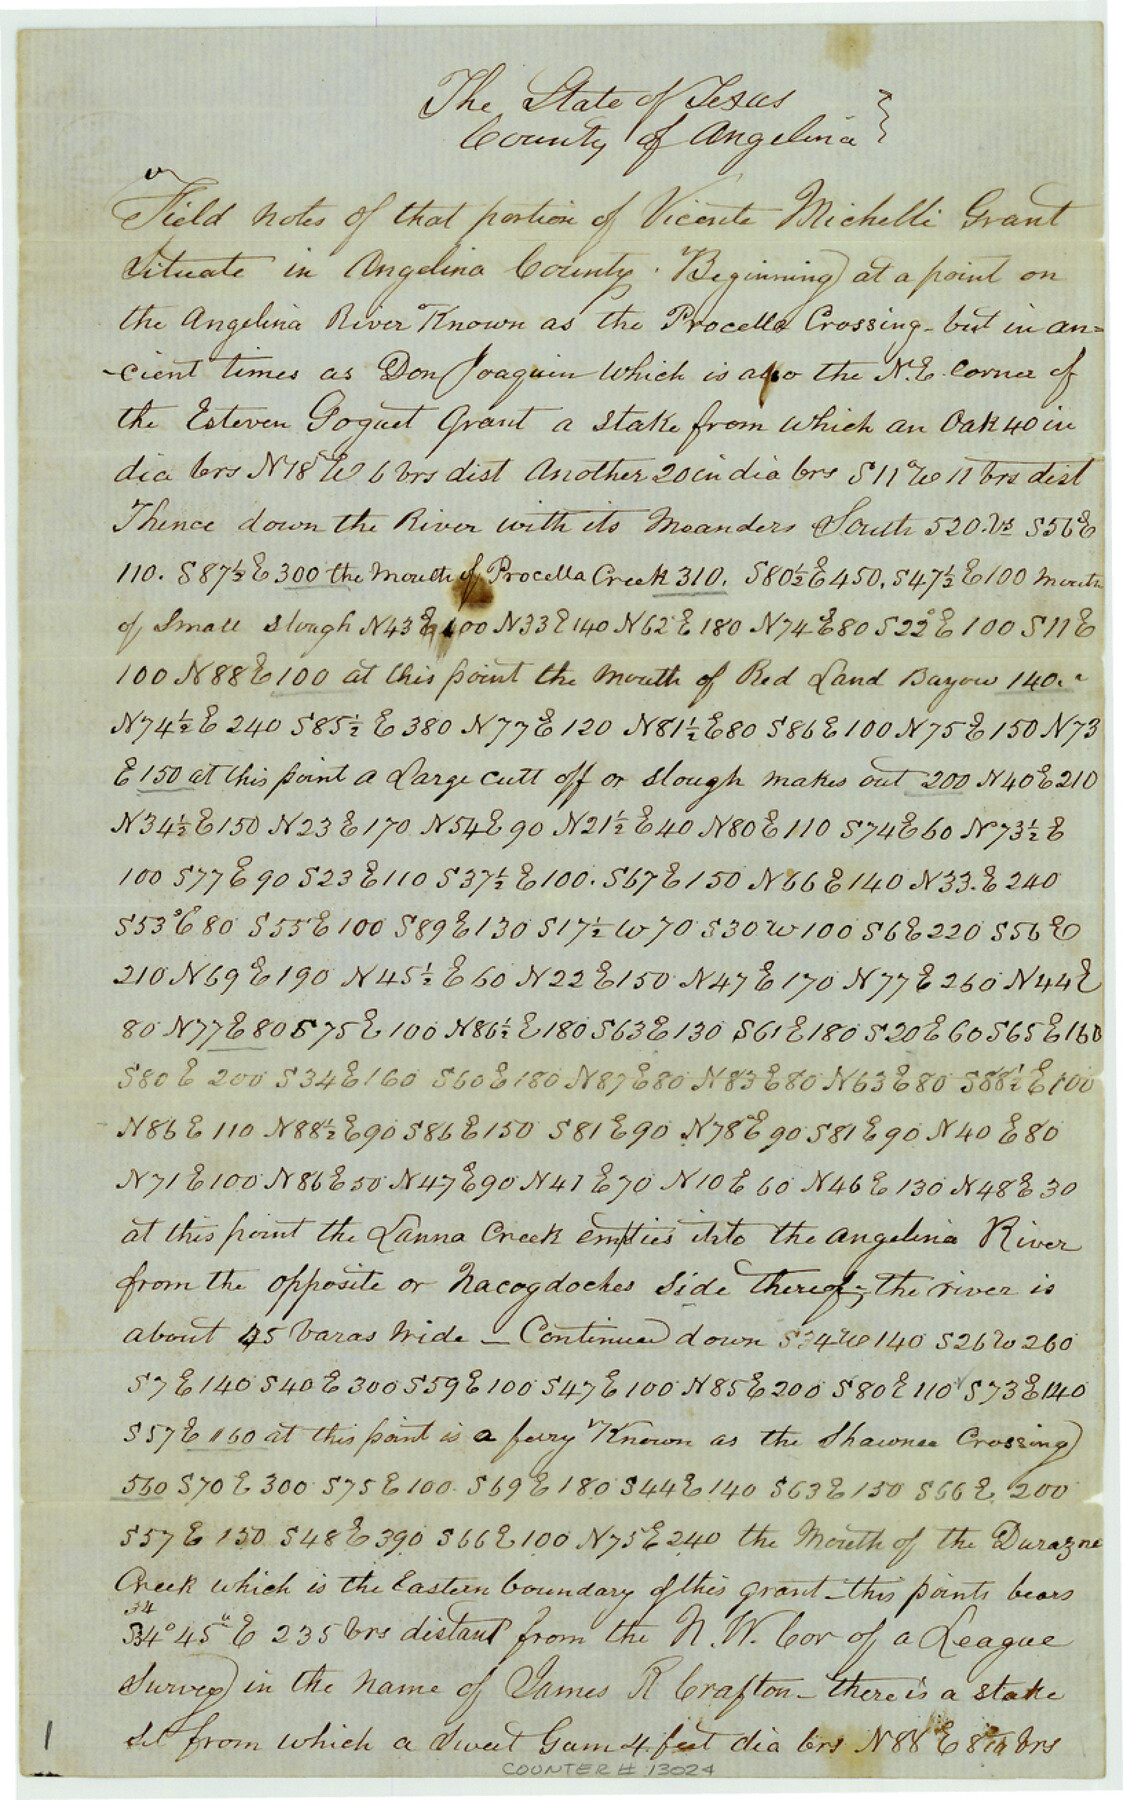 The State of Texas }
County of Angelina }
Field notes of that portion of Vicente Michelli Grant
Situate in Angelina County. Beginning at a point on
the Angelina River Known as the Procella Crossing - but in an=
-cient times as Don Joaquin which is also the N.E. corner of
the Esteven Goguet Grant a stake from which an Oak 40 in
dia brs N18°W 6 vrs dist Another 20 in dia brs S11°W 11 vrs dist
Thence down the River with its Meanders South 520 Vs S56°E
110. S87½E 300 the Mouth of Procella Creek 310. S80½E 450. S47½E 100 Mouth
of Small slough N43°E 100 N33E 140 N62°E 180 N74°E 80 S22°E 100 S11E
100 N88E 100 at this point the Mouth of Red Land Bayou 140.
N74½E 240 S85½E 380 N77°E 120 N81½E 80 S86E 100 N75E 150 N73
E 150 at this point a Large cutt off or slough makes out 200 N40°E 210
N34½E 150 N23E 170 N54E 90 N21½E 40 N80E 110 S74E 60 N73½E
100 S77E 90 S23E 110 S37½E 100. S67E 150 N66E 140 N33.E 240
S53°E 80 S55E 100 S89E 130 S17½W 70 S30W 100 S6E 220 S56E
210 N69E 190 N45½E 60 N22E 150 N47E 170 N77E 260 N44E
80 N77E 80 S75E 100 N86½E 180 S63E 130 S61E 180 S20E 60 S65E 160
S80E 200 S34E 160 S60E 180 N87E 80 N83E 80 N63E 80 S88½E 100
N86E 110 N88½E 90 S86E 150 S81E 90 N78°E 90 S81E 90 N40E 80
N71E 100 N86E 50 N47E 90 N41E 70 N10E 60 N46E 130 N48E 30
at this point the Lanna Creek empties into the Angelina River
from the opposite or Nacogdoches side thereof; the river is
about 45 varas wide - Continued down S34W 140 S26W 260
S7E 140 S40E 300 S59E 100 S47E 100 N85E 200 S80E 110 S73E 140
S57E 160 at this point is a ferry Known as the Shawnee Crossing
560 S70E 300 S75E 100 S69E 180 S44E 140 S63E 150 S66E 200
S57E 150 S48E 390 S66E 100 N75°E 240 the Mouth of the Durazne
Creek which is the Eastern boundary of this grant - this points bears
34
S34°45"E 235 vrs distant from the N.W. Cor of a League
Survey in the name of James R Crafton - there is a stake
set from which a Sweet Gum 4 feet dia brs N88°E vrs
1
COUNTER # 13024